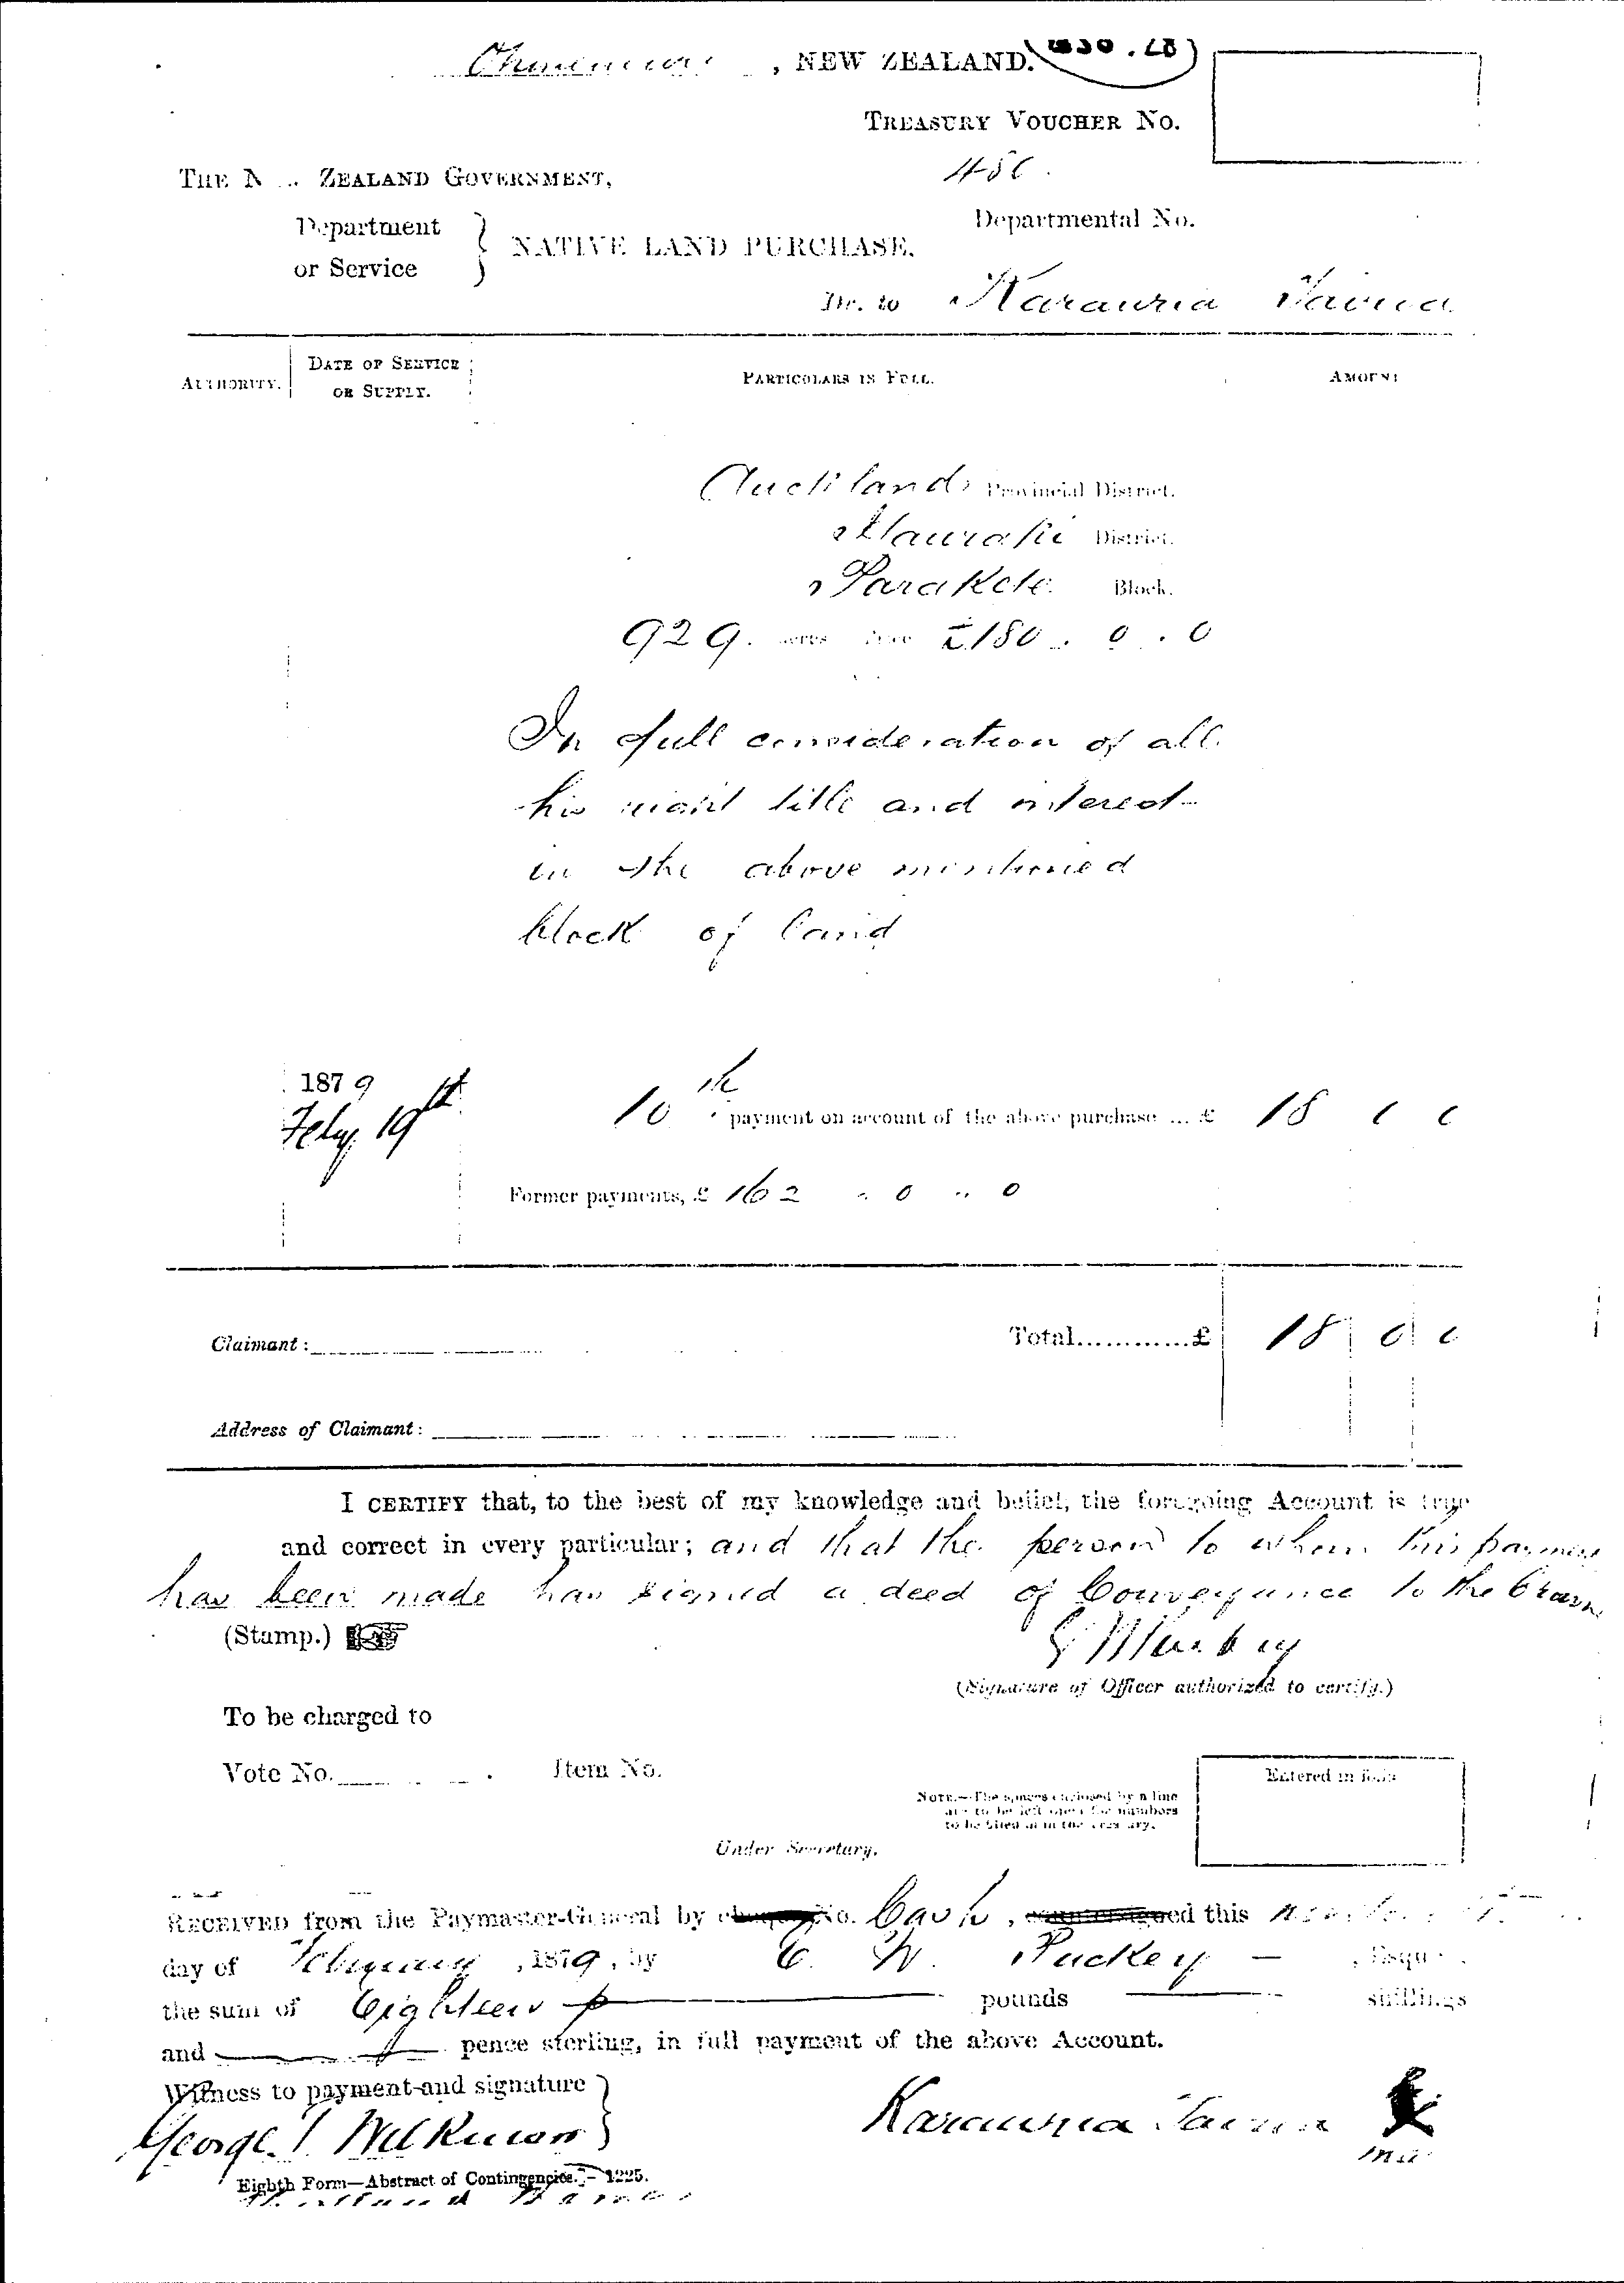 , NEW ZEALAND.
TREASURY VOUCHER NO.
THE N ZEALAND GOVERNMENT,
Departmental No.
Department
or Service } NATIVE LAND PURCHASE.
Dr. to Karauria
AUTHORITY. DATE OF SERVICE OR SUPPLY. PARTICULARS IN FULL. AMOUNT
Auckland Provincial District.
Hauraki District.
Parakete Block.
929. acres Price £180 . 0 . 0
In full consideration of all
his right title and interest
in the above mentioned
block of land
1879
Feby. 19th 10th payment on account of the above purchase ... £ 18 0 0
Former payments, £ 162 .. 0 .. 0
Claimant: Total............£ 18 0 0
Address of Claimant:
I CERTIFY that, to the best of my knowledge and belief, the foregoing Account is true
and correct in every particular; and that the person to whom this payment
has been made has signed a deed of Conveyance to the Crown
(Stamp.)
(Signature of Officer authorized to certify.)
To be charged to
Vote No. Item No.
Entered in
NOTE.—The spaces enclosed by a line
are to be left open for numbers
to be filled in in the Treasury.
Under Secretary.
RECEIVED from the Paymaster-General by No. Cash, this
day of February, 1879, by E. W. Puckey — , Esqu
the sum of Eighteen pounds shillings
and pence sterling, in full payment of the above Account.
Witness to payment and signature }
George T Wilkinson
Karauria
Eighth Form—Abstract of Contingencies.—1225.